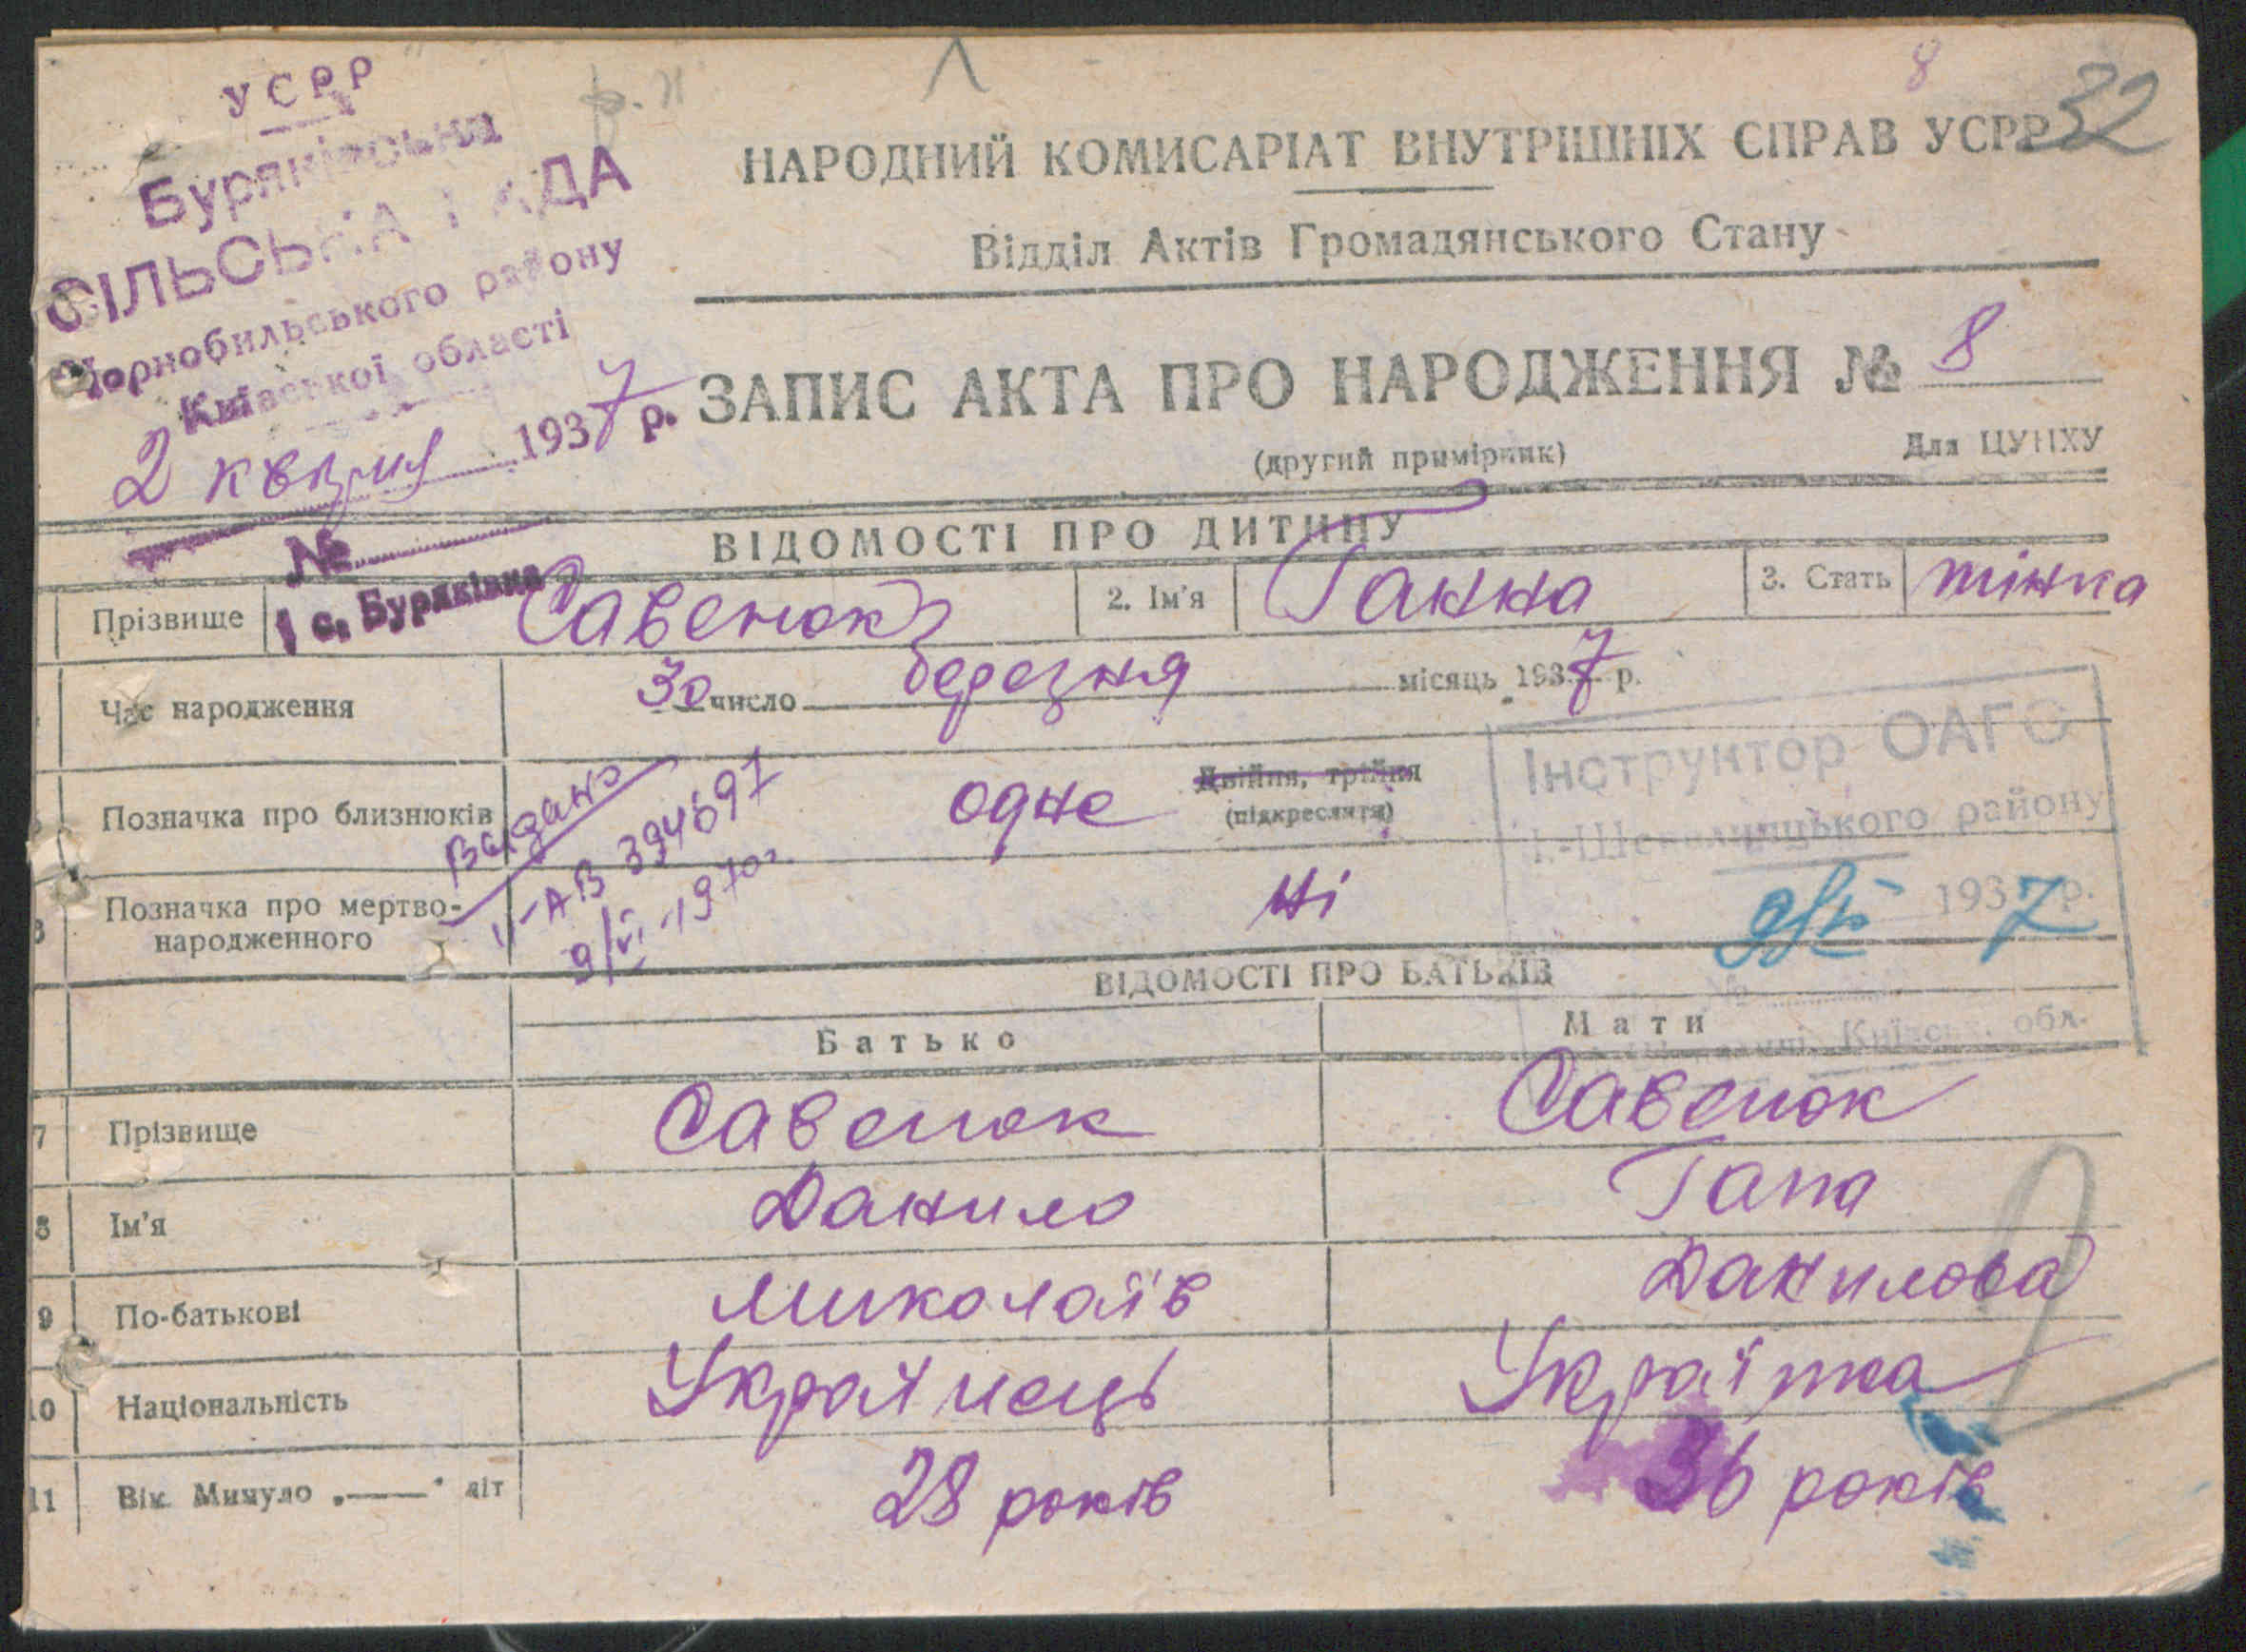 8
32
УСРР
Буряківська
СІЛЬСЬКА РАДА
Чорнобильського району
Київської області
2 квітня 1937 р.
№
с. Буряківка
НАРОДНИЙ КОМИСАРІАТ ВНУТРІШНІХ СПРАВ УСРР
Відділ Актів Громадянського Стану
ЗАПИС АКТА ПРО НАРОДЖЕННЯ № 8
(другий примірник)
Для ЦУНХУ
ВІДОМОСТІ ПРО ДИТИНУ
Прізвище Савенюк 2. Ім'я Ганна 3. Стать жінка
Час народження 30 число березня місяць 1937 р.
Позначка про близнюків одне Двійня, трійня
(підкреслити)
Выдано
II-АВ 394697
9/VI-1970г.
Позначка про мертво-
народженного ні
Інструктор ОАГС
району
1937 р.
№
Київськ. обл.
ВІДОМОСТІ ПРО БАТЬКІВ
Батько Мати
7 Прізвище Савенюк Савенюк
8 Ім'я Данило Гапа
9 По-батькові Миколаїв Данилова
10 Національність Українець Українка
11 Вік. Минуло „——" літ 28 років 36 років